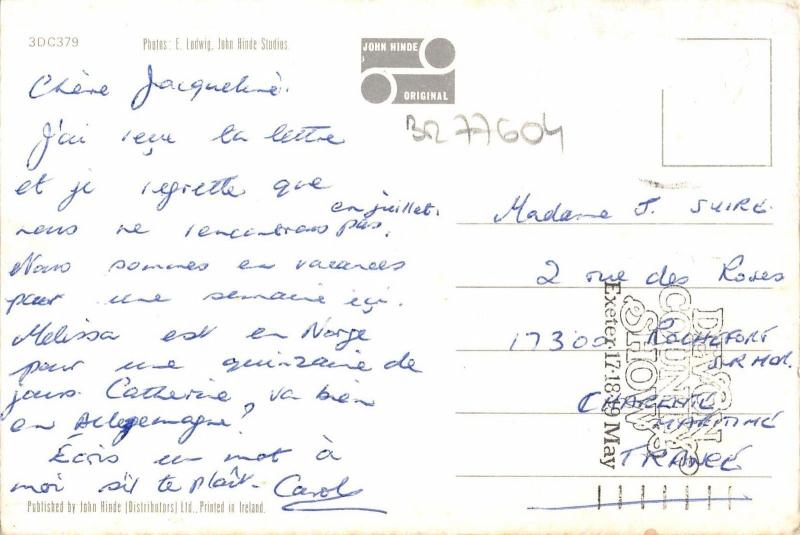 3DC379
Photos: E. Ludwig, John Hinde Studios.
JOHN HINDE
ORIGINAL
BR 77604
Chère Jacqueline.
J'ai reçu ta lettre
et je regrette que
nous ne rencontrons pas.
en juillet.
Nous sommes en vacances
pour une semaine içi.
Melissa est en Norge
pour une quinzaine de
jours. Catherine, va bien
en Allegemagne?
Écris un mot à
moi s'il te plaît - Carol
Published by John Hinde (Distributors) Ltd., Printed in Ireland.
Madame J. SUIRE
2 rue des Roses
17300 ROCHEFORT
S/R MER.
CHARENTE
MARITIME
FRANCE
DEVON
COUNTY
SHOW
Exeter 17·18·19 May